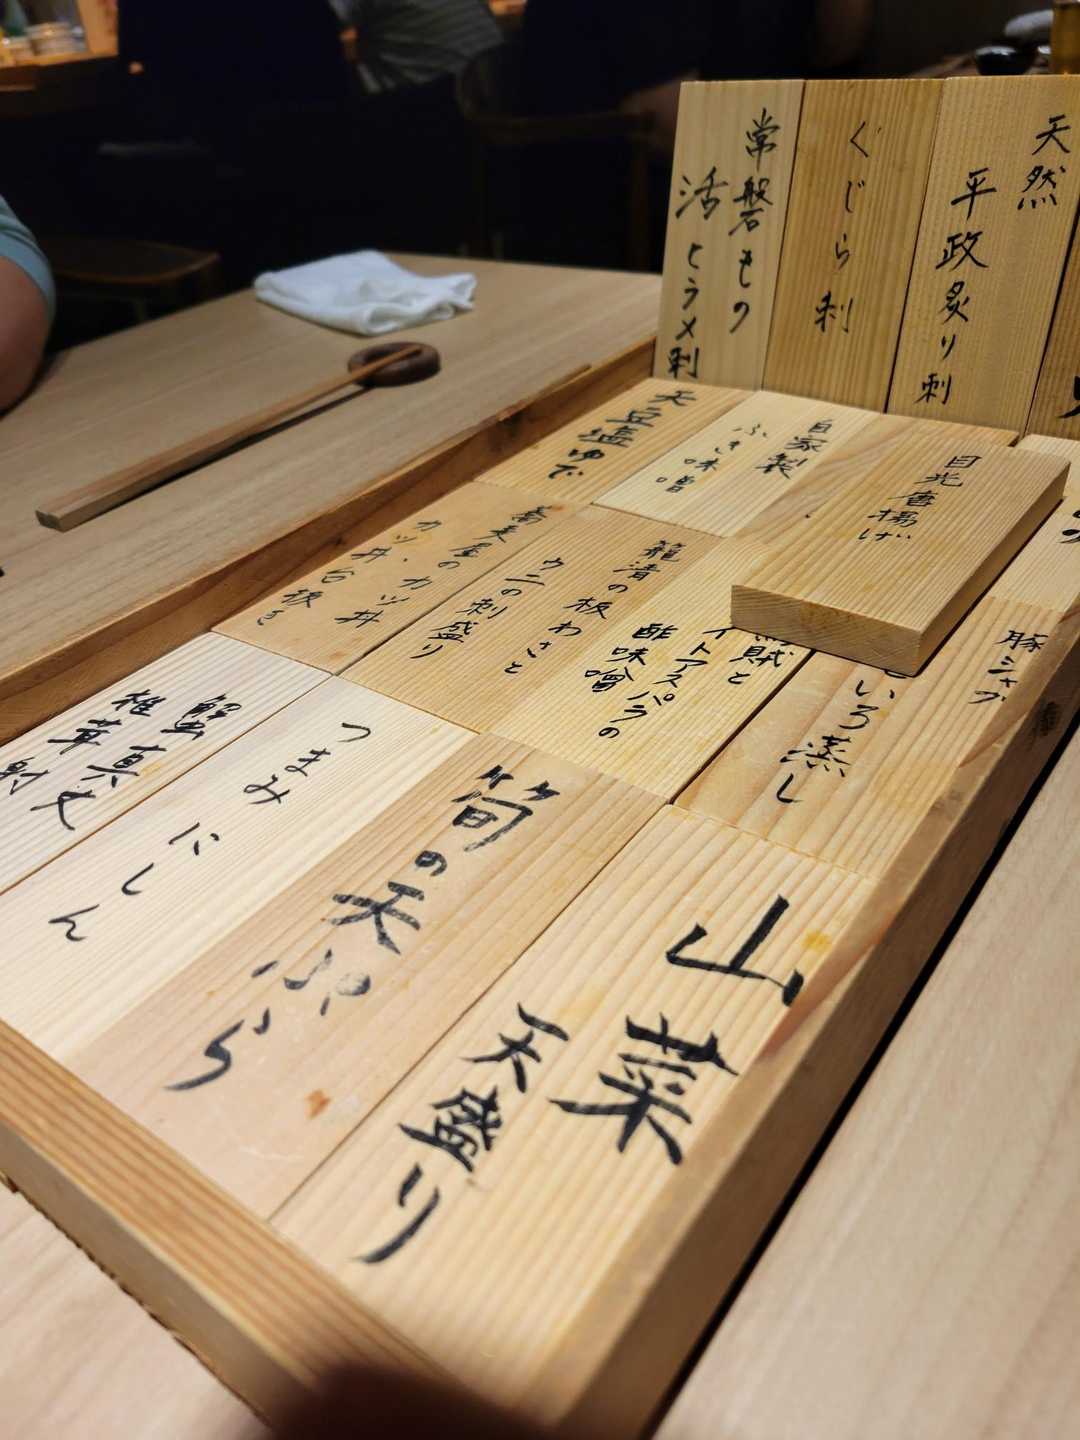 天然
平政炙り刺
くじら刺
常磐もの
活ヒラメ刺
目光唐揚げ
自家製
ふき味噌
天豆塩ゆで
豚シャブ
いろ蒸し
賊と
イトアスパラの
酢味噌
籠清の板わさと
ウニの刺盛り
蕎麦屋のカツ丼
カツ・カツ丼台抜き
山菜
天盛り
筍の天ぷら
つまみにしん
蟹真丈
椎茸射